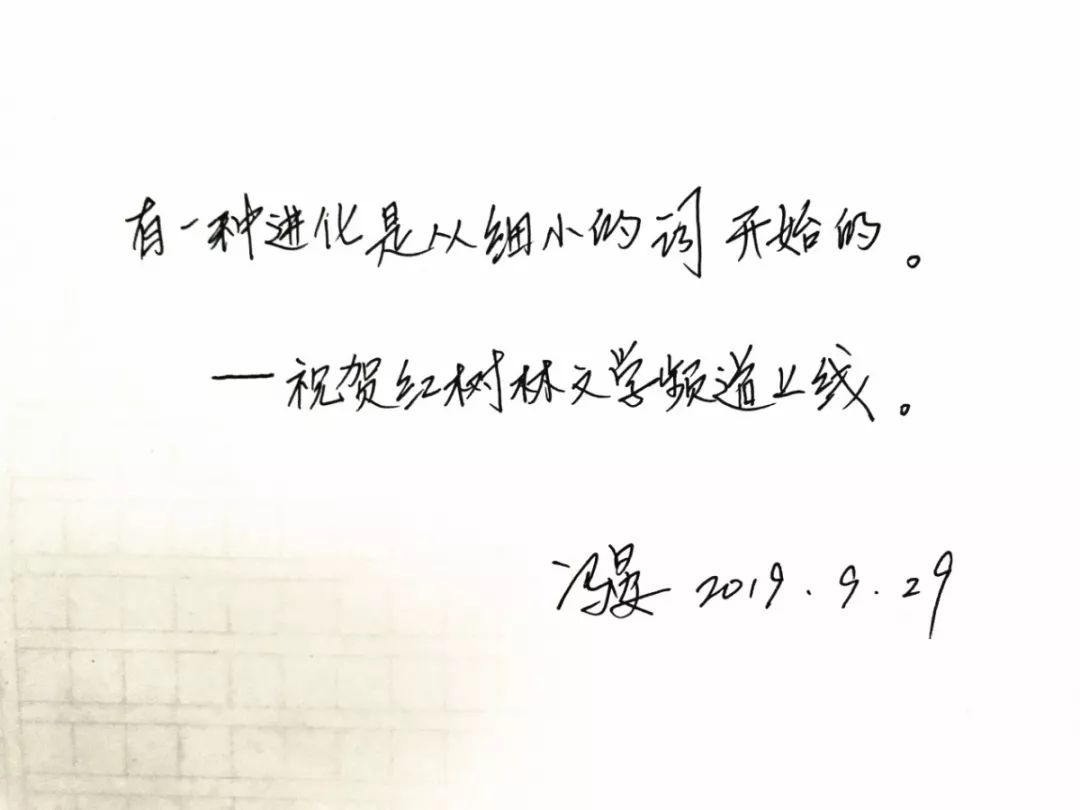 有一种进化是从细小的词开始的。
—祝贺红树林文学频道上线。
冯晏 2019.9.29